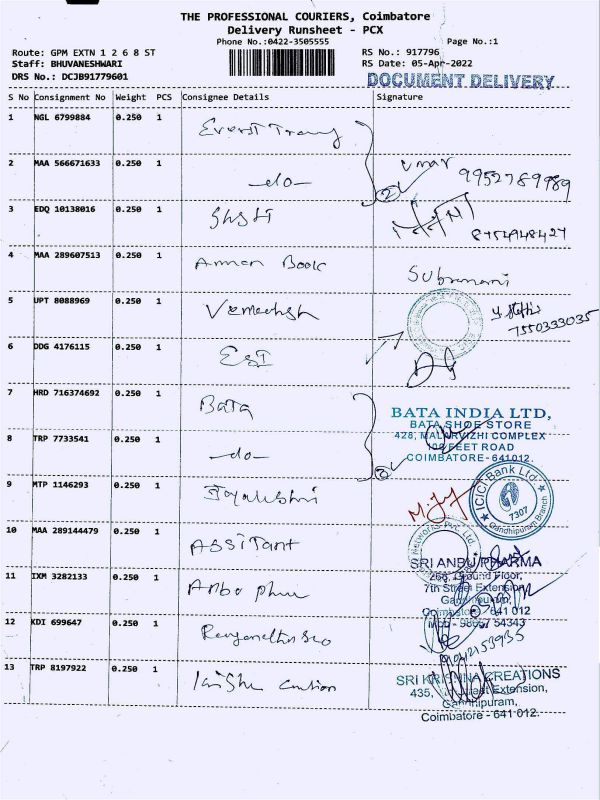 THE PROFESSIONAL COURIERS, Coimbatore
Delivery Runsheet - PCX
Phone No.:0422-3505555
Page No.:1
Route: GPM EXTN 1 2 6 8 ST
RS No.: 917796
Staff: BHUVANESHWARI
RS Date: 05-Apr-2022
DRS No.: DCJB91779601
DOCUMENT DELIVERY
S No Consignment No Weight PCS Consignee Details Signature
1 NGL 6799884 0.250 1
2 MAA 566671633 0.250 1 -do- 2 Umar 9952789989
3 EDQ 10138016 0.250 1 8754948427
4 MAA 289607513 0.250 1 Annan Book Subramani
5 UPT 8088969 0.250 1 7550333035
6 DDG 4176115 0.250 1 ESI
7 HRD 716374692 0.250 1 Bata
BATA INDIA LTD,
BATA SHOE STORE
8 TRP 7733541 0.250 1 -do- 2
428, MALARVIZHI COMPLEX
100 FEET ROAD
COIMBATORE - 641 012.
9 MTP 1146293 0.250 1
ICICI Bank Ltd.
7307
Gandhipuram Branch
10 MAA 289144479 0.250 1 Assitant
Networks Pvt. Ltd.
SRI ANBU PHARMA
11 IXM 3282133 0.250 1
268, Ground Floor,
7th Street Extension,
Gandhipuram,
Coimbatore - 641 012
12 KDI 699647 0.250 1
Mob - 98657 54343
9042153935
13 TRP 8197922 0.250 1
SRI KRISHNA CREATIONS
435, Street Extension,
Gandhipuram,
Coimbatore - 641 012.